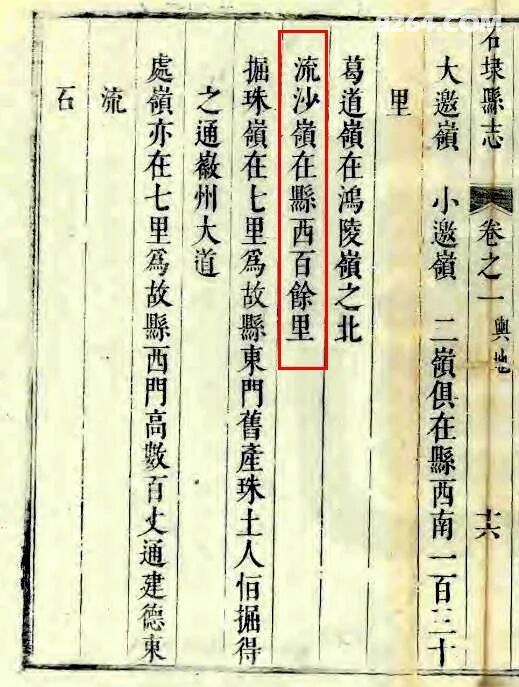 8264.COM
石埭縣志 卷之一 輿地 十六
大遨嶺 小遨嶺 二嶺俱在縣西南一百三十
里
葛道嶺在鴻陵嶺之北
流沙嶺在縣西百餘里
掘珠嶺在七里為故縣東門舊產珠土人佰掘得
之通徽州大道
處嶺亦在七里為故縣西門高數百丈通建德東
流
石